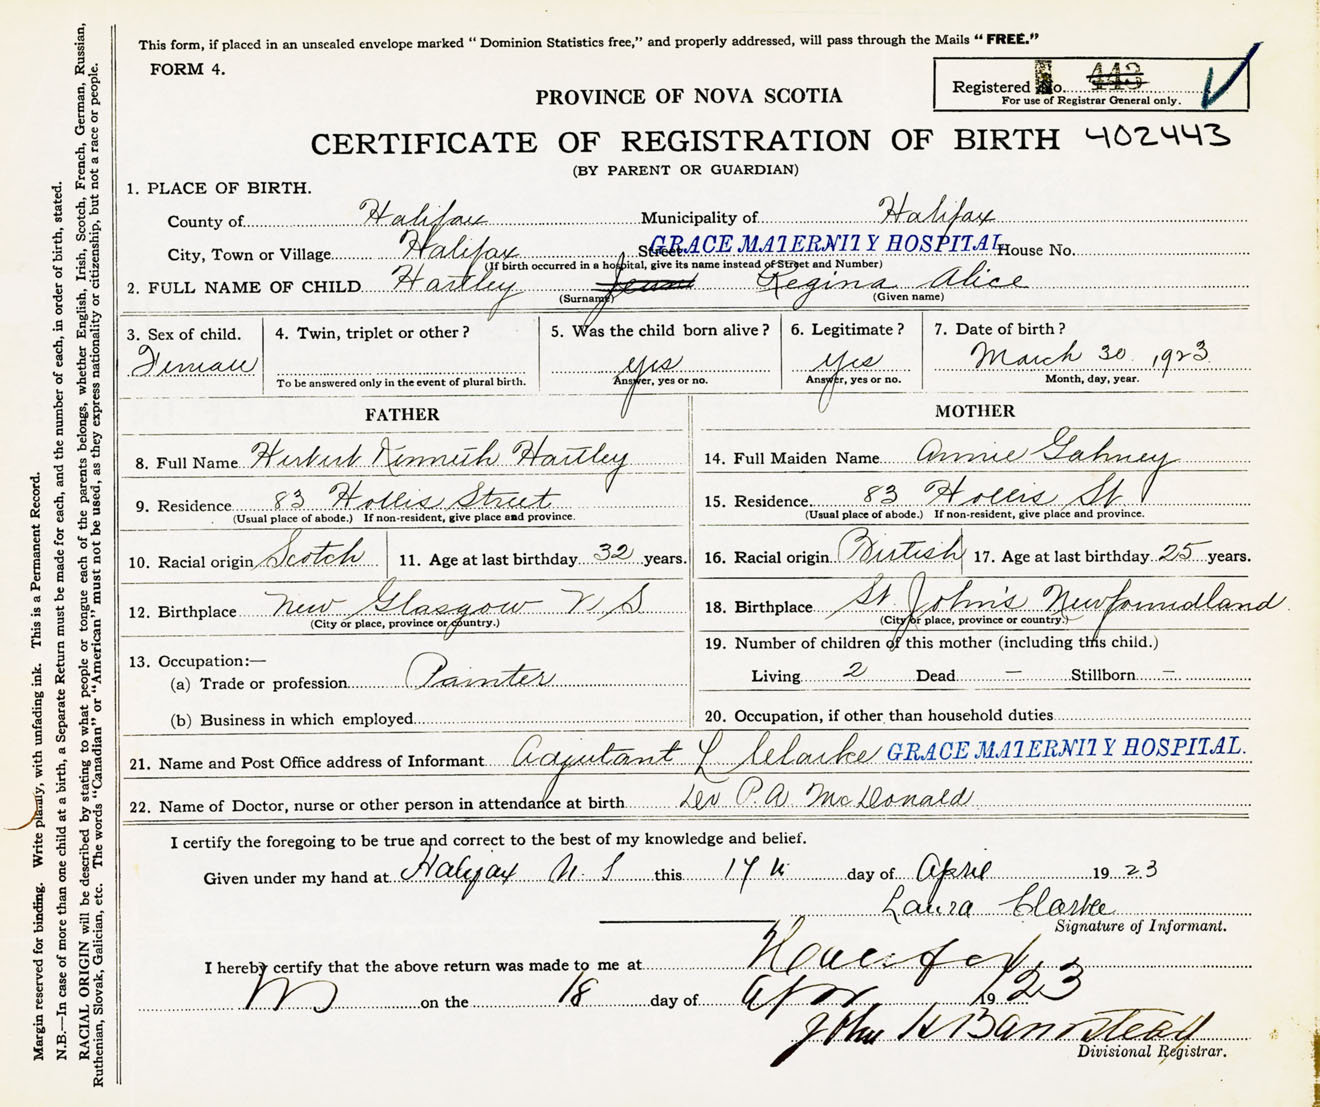 This form, if placed in an unsealed envelope marked “ Dominion Statistics free,” and properly addressed, will pass through the Mails “ FREE.”
FORM 4.
Registered No. 443
For use of Registrar General only.
PROVINCE OF NOVA SCOTIA
CERTIFICATE OF REGISTRATION OF BIRTH 402443
(BY PARENT OR GUARDIAN)
1. PLACE OF BIRTH.
County of Halifax Municipality of Halifax
City, Town or Village Halifax Street GRACE MATERNITY HOSPITAL House No.
(If birth occurred in a hospital, give its name instead of Street and Number)
2. FULL NAME OF CHILD Hartley Regina Alice
(Surname) (Given name)
3. Sex of child. 4. Twin, triplet or other ? 5. Was the child born alive ? 6. Legitimate ? 7. Date of birth ?
Female yes yes March 30 1923
To be answered only in the event of plural birth. Answer, yes or no. Answer, yes or no. Month, day, year.
FATHER MOTHER
8. Full Name Herbert Kenneth Hartley 14. Full Maiden Name Annie Gahney
9. Residence 83 Hollis Street 15. Residence 83 Hollis St
(Usual place of abode.) If non-resident, give place and province. (Usual place of abode.) If non-resident, give place and province.
10. Racial origin Scotch 11. Age at last birthday 32 years. 16. Racial origin British 17. Age at last birthday 25 years.
12. Birthplace New Glasgow N S 18. Birthplace St John's Newfoundland
(City or place, province or country.) (City or place, province or country.)
19. Number of children of this mother (including this child.)
13. Occupation:—
(a) Trade or profession Painter Living 2 Dead — Stillborn —
(b) Business in which employed 20. Occupation, if other than household duties
21. Name and Post Office address of Informant Adjutant L Clarke GRACE MATERNITY HOSPITAL.
22. Name of Doctor, nurse or other person in attendance at birth P.A. McDonald
I certify the foregoing to be true and correct to the best of my knowledge and belief.
Given under my hand at Halifax N. S this 17th day of April 1923
Laura Clarke
Signature of Informant.
I hereby certify that the above return was made to me at Halifax
on the 18 day of Apr 1923
John H Barnstead
Divisional Registrar.
Margin reserved for binding. Write plainly, with unfading ink. This is a Permanent Record.
N.B.—In case of more than one child at a birth, a Separate Return must be made for each, and the number of each, in order of birth, stated.
RACIAL ORIGIN will be described by stating to what people or tongue each of the parents belongs, whether English, Irish, Scotch, French, German, Russian,
Ruthenian, Slovak, Galician, etc. The words “Canadian” or “American” must not be used, as they express nationality or citizenship, but not a race or people.